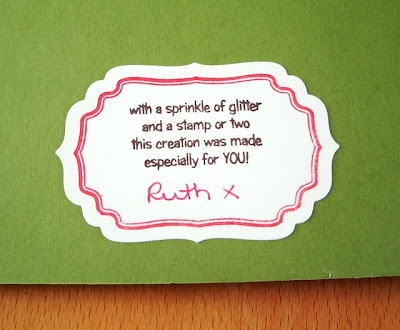 with a sprinkle of glitter
and a stamp or two
this creation was made
especially for YOU!
Ruth x